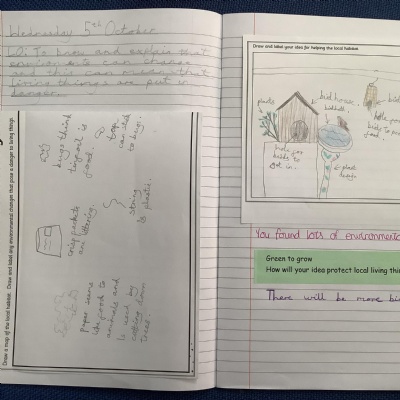 Wednesday 5th October
LO: To know and explain that
environments can change
and this can mean that
living things are put in
danger.
Draw a map of the local habitat. Draw and label any environmental changes that pose a danger to living things
bugs think
tarpoil is
food.
tape
can stick
to bugs.
crisp packets
are littering.
string
is plastic.
paper seems
like food to
animals and
is used by
cutting down
trees.
Draw and label your idea for helping the local habitat.
plants
bird house.
birdbath
hole for
birds to
get in.
plack
design
hole
birds to
food.
You found lots of environmenta
Green to grow
How will your idea protect local living thin
There will be more bi